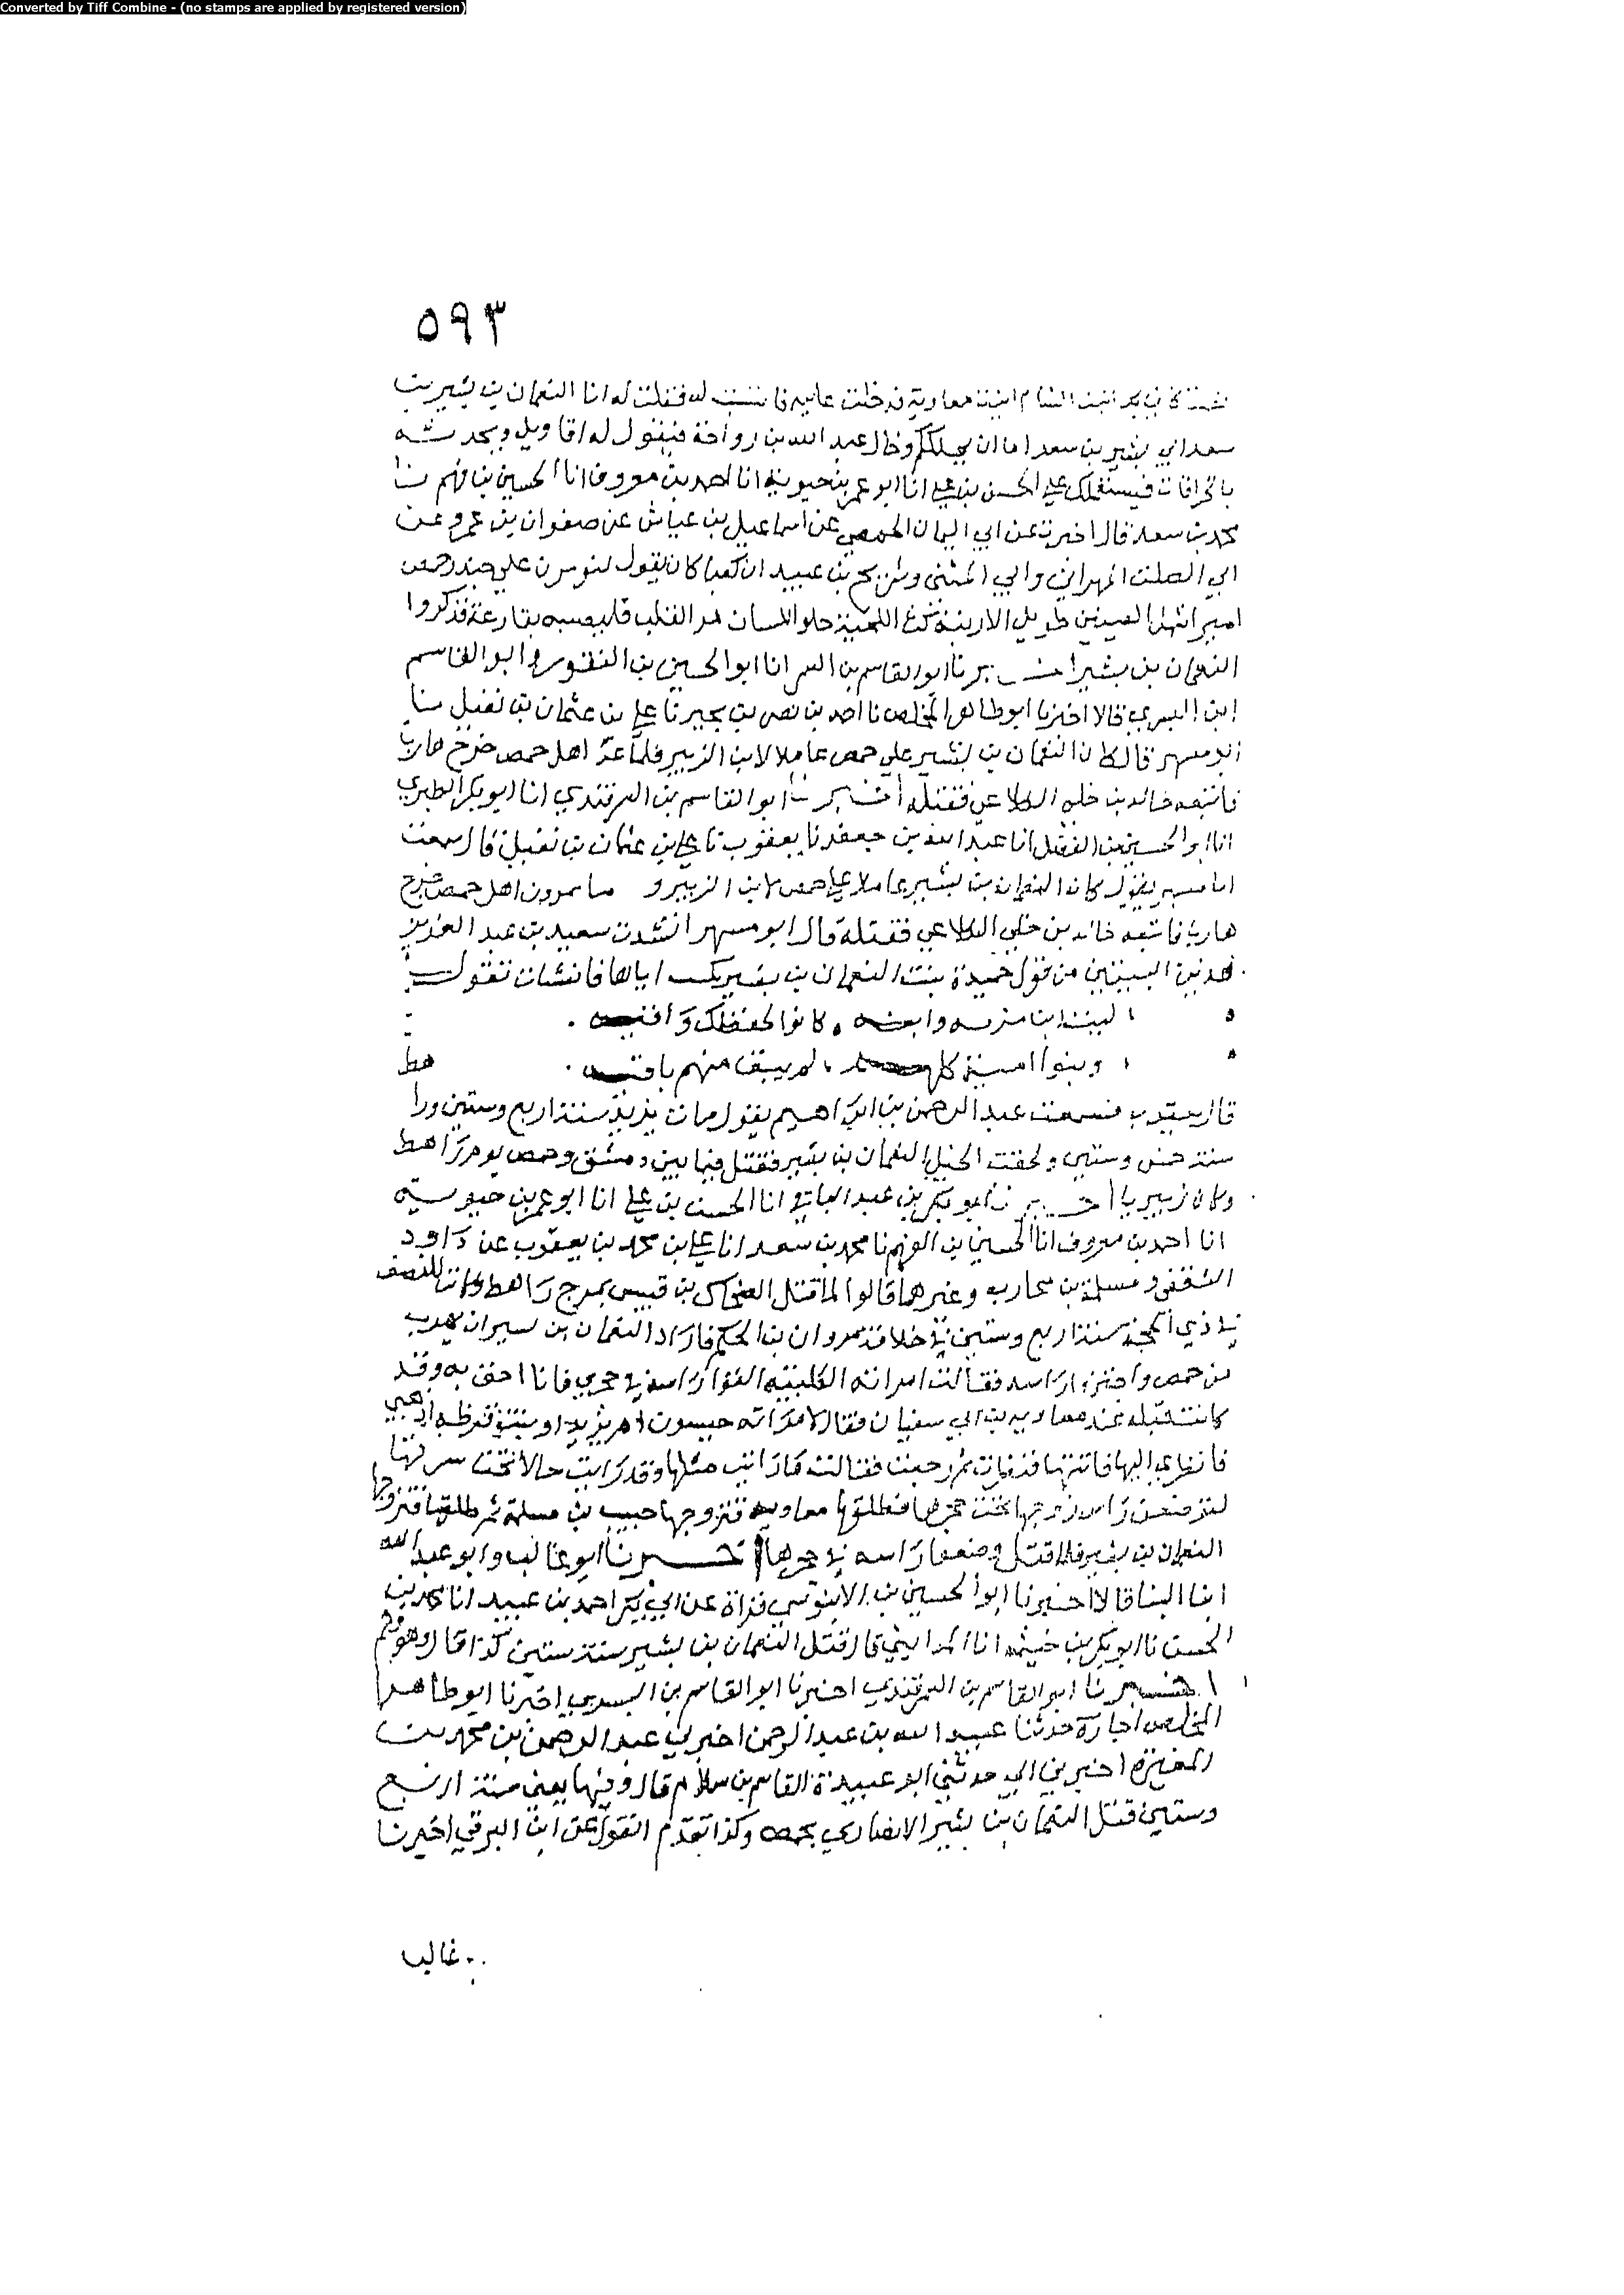 Converted by Tiff Combine - (no stamps are applied by registered version)
٥٩٣
الشام معاوية فدخلت عليه فانتسبت له فقلت له انا النعمان بن بشير بن
سعد ابي بشير بن سعد اما ان وخال عبد الله بن رواحة فيقول له اقاويل ويحدثه
بالخرافات الحسن بن علي انا ابو عمر بن حيويه انا احمد بن معروف انا الحسين بن فهم نا
محمد بن سعد قال اخبرت عن ابي اليمان الحمصي عن اسماعيل بن عياش عن صفوان بن عمرو عن
ابي الصلت وابي المثنى وشريح بن عبيد ان كعبا كان يقول ليؤمرن علي جند حمص
امير العينين طويل الارنبة كث اللحية حلو اللسان مر القلب فليصيبه بقارعة فذكروا
النعمان بن بشير اخبرنا ابو القاسم بن السمر انا ابو الحسين بن النقور وابو القاسم
ابن البسري قالا اخبرنا ابو طاهر المخلص نا احمد بن نصر بن بجير نا علي بن عثمان بن نفيل نا
ابو مسهر قال كان النعمان بن بشير علي حمص عاملا لابن الزبير فلما اهل حمص خرج هاربا
فاتبعه خالد بن خلي الكلاعي فقتله اخبرنا ابو القاسم بن السمرقندي انا ابو بكر الطبري
انا ابو الحسين بن الفضل انا عبد الله بن جعفر نا يعقوب نا علي بن عثمان بن نفيل قال سمعت
ابا مسهر يقول كان النعمان بن بشير عاملا علي حمص لابن الزبير و اهل حمص خرج
هاربا فاتبعه خالد بن خلي الكلاعي فقتله قال ابو مسهر انشدت سعيد بن عبد العزيز
هذين البيتين من قول حميدة بنت النعمان بن بشير اباها فانشات تقول
ليت ابن مزنه وابنه كانوا لحفظك واقيه
وبنوا امية كلهم لم يبق منهم باقيه
قال يعقوب فسمعت عبد الرحمن بن ابراهيم يقول مات يزيد سنة اربع وستين ورا
هط
سنة خمس وستين ولحقت الخيل النعمان بن بشير فقتل فيما بين دمشق وحمص يوم راهط
وكان زبيريا اخبرنا ابو بكر بن عبد الباقي انا الحسن بن علي انا ابو عمر بن حيويه
انا احمد بن معروف انا الحسين بن الفهم نا محمد بن سعد انا علي بن محمد بن يعقوب عن داود
الثقفي ومسلمة بن محارب وغيرهما قالوا لما قتل الضحاك بن قيس بمرج راهط وكانت للنصف
في ذي الحجة سنة اربع وستين في خلافة مروان بن الحكم فاراد النعمان بن بشير ان يهرب
من حمص راسه فقالت امراته الكلبية القوا راسه في حجري فانا احق به وقد
كانت قبله عند معاوية بن ابي سفيان فقال لامراته ميسون ام يزيد اذهبي
فانظري اليها فاتتها فنظرت ثم رجعت فقالت ما رايت مثلها وقد رايت خالا تحت سرتها
ليوضعن راس زوجها تحت حجرها فطلقها معاوية فتزوجها حبيب بن مسلمة ثم طلقها فتزوجها
النعمان بن بشير فلما قتل وضعوا راسه في حجرها اخبرنا ابو غالب وابو عبد الله
ابنا البنا قالا اخبرنا ابو الحسين بن الابنوسي قراة عن ابي بكر احمد بن عبيد انا محمد بن
الحسن نا ابو بكر بن خيثمه انا المدايني قال قتل النعمان بن بشير سنة ستين كذا قال وهو وهم
اخبرنا ابو القاسم بن السمرقندي اخبرنا ابو القاسم بن البسري اخبرنا ابو طاهر
المخلص اجازة حدثنا عبيد الله بن عبد الرحمن اخبرني عبد الرحمن بن محمد بن
المغيرة اخبرني ابي حدثني ابو عبيدة القاسم بن سلام قال وفيها يعني سنة اربع
وستين قتل النعمان بن بشير الانصاري بحمص وكذا تقدم القول عن ابن البرقي اخبرنا
غالب